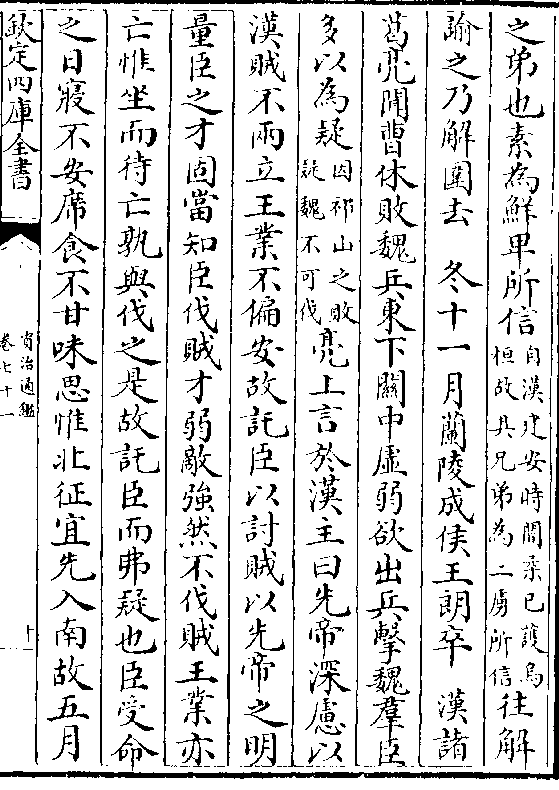 之弟也素為鮮卑所信自漢建安時閻柔已護烏桓故其兄弟為二虜所信往解
諭之乃解圍去　冬十一月蘭陵成侯王朗卒　漢諸
葛亮聞曹休敗魏兵東下關中虛弱欲出兵擊魏羣臣
多以為疑因祁山之敗疑魏不可伐亮上言於漢主曰先帝深慮以
漢賊不兩立王業不偏安故託臣以討賊以先帝之明
量臣之才固當知臣伐賊才弱敵強然不伐賊王業亦
亡惟坐而待亡孰與伐之是故託臣而弗疑也臣受命
之日寢不安席食不甘味思惟北征宜先入南故五月
欽定四庫全書
資治通鑑
卷七十一
十